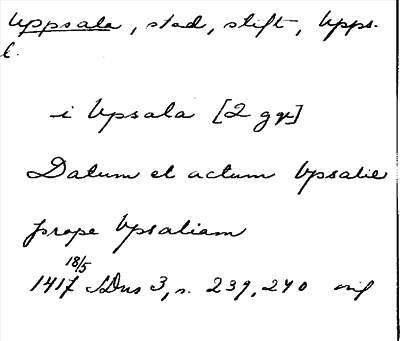 Uppsala, stad, stift, Upps.
l.
i Upsala [2 ggr]
Datum et actum Vpsalie
prope Vpsaliam
18/5
1417 SDns 3, s. 239, 240